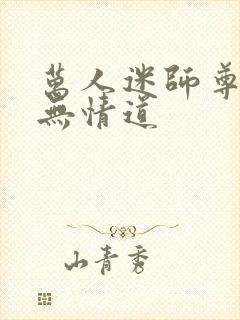 萬人迷師尊
無情道
山青秀